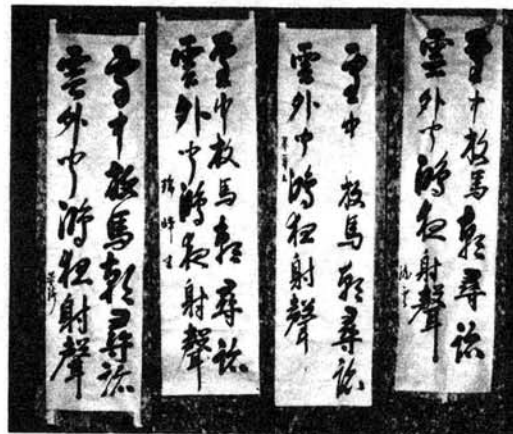 雪中放馬朝尋跡
雲外聞鴻夜射聲
雪中放馬朝尋跡
雲外聞鴻夜射聲
雪中放馬朝尋跡
雲外聞鴻夜射聲
雪中放馬朝尋跡
雲外聞鴻夜射聲